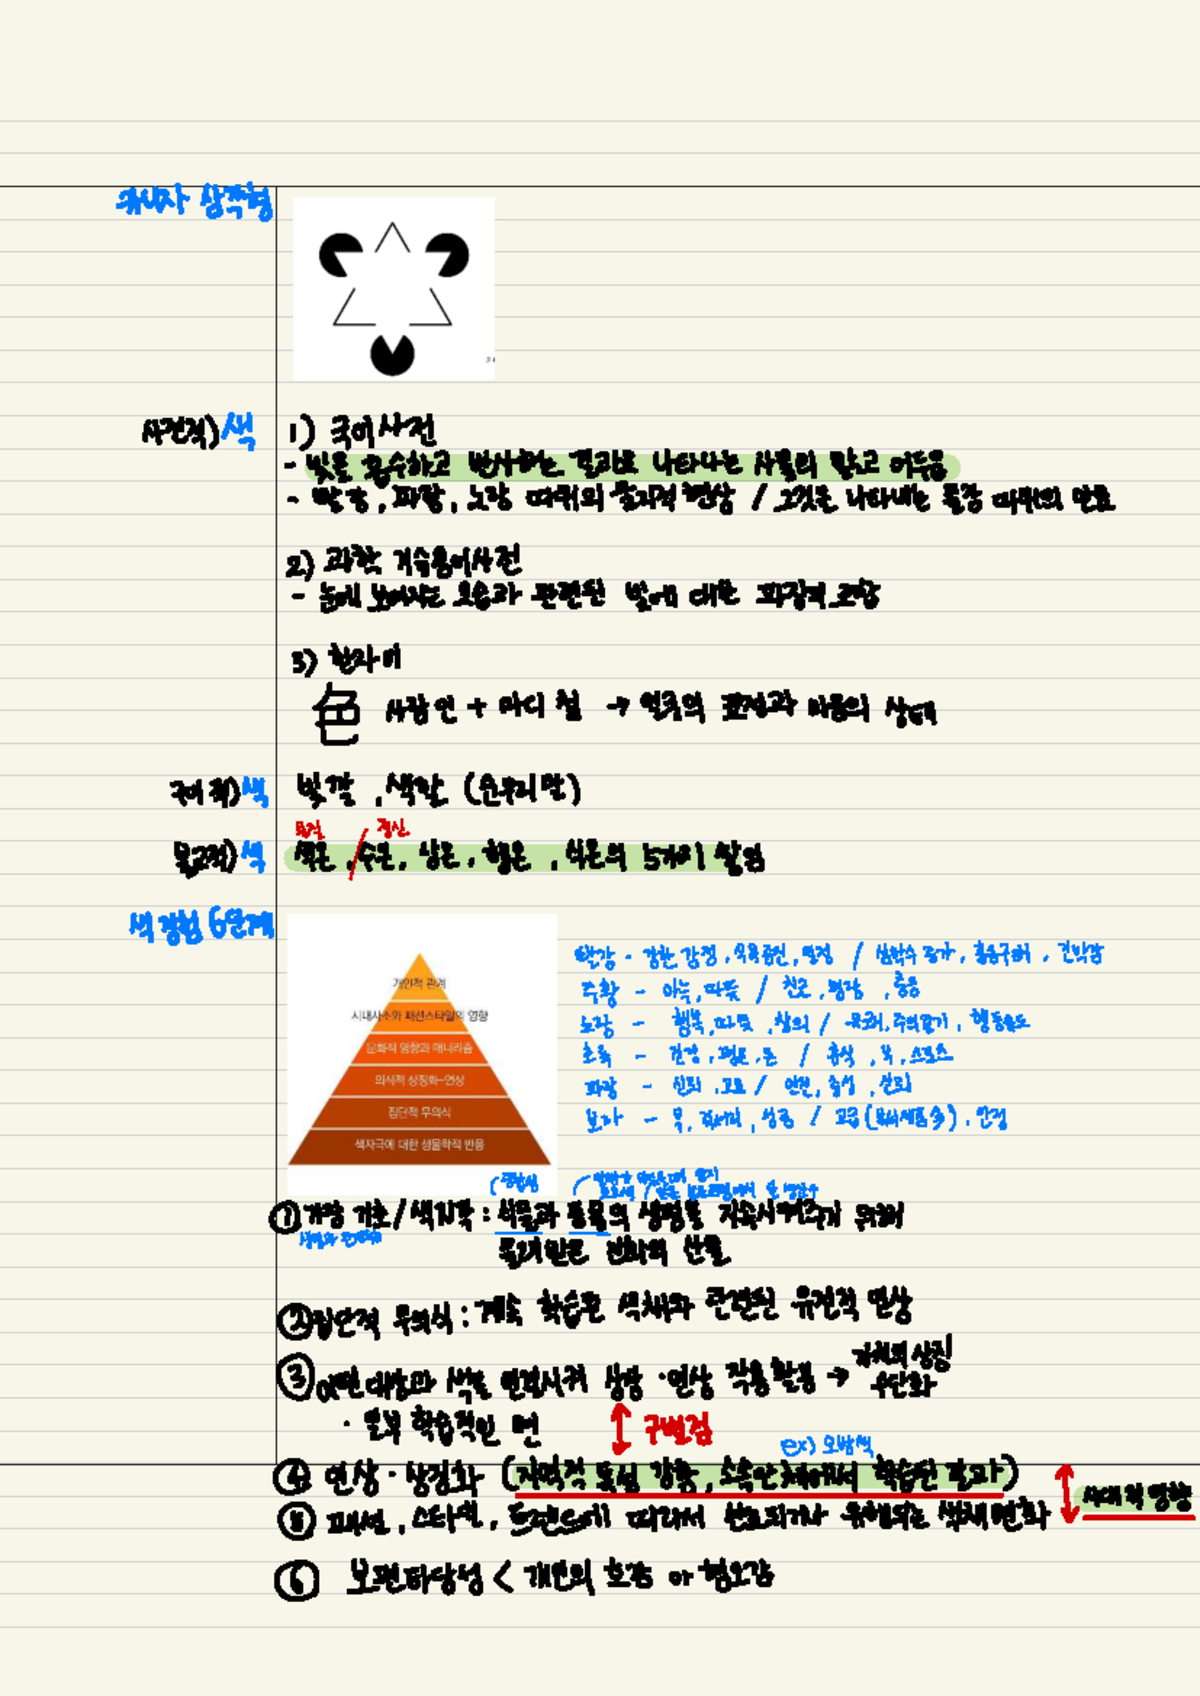 카니자 삼각형
사전적) 색
1) 국어사전
- 빛을 흡수하고 반사하는 결과로 나타나는 사물의 밝고 어두움
- 빨강, 파랑, 노랑 따위의 물리적 현상 / 그것을 나타내는 물감 따위의 안료
2) 과학 기술용어사전
- 눈에 보여지는 모습과 관련된 빛에 대한 파장의 조합
3) 한자어
色 사람 인 + 마디 절 → 얼굴의 표정과 마음의 상태
국어적) 색
빛깔, 색깔 (순우리말)
물질 정신
불교적) 색
색온, 수온, 상온, 행온, 식온의 5가지 쌓임
색 경험 6단계
개인적 관계
시대사조와 패션스타일의 영향
문화적 영향과 매너리즘
의식적 상징화-연상
집단적 무의식
색자극에 대한 생물학적 반응
빨강 - 강한 감정, 식욕증진, 열정 / 심박수 증가, 충동구매, 긴박감
주황 - 아늑, 따뜻 / 친근, 명랑,
노랑 - 행복, 따뜻, 창의 /
초록 - 건강, 평온, 돈 / 휴식, 부, 스포츠
파랑 - 신뢰, 고요 / 안전, 충성, 신뢰
보라 - 부,
① 가장 기초/색지각 : 식물과 동물의 생명을 지속시켜주기 위해
물려받은 진화의 산물
② 집단적 무의식 : 계속 학습한 색채와 관련된 유전적 연상
③ 어떤 대상과 색을 연결시켜 상징·연상 작용 활용 →
· 일부 학습적인 면
구별점
ex) 오방색
④ 연상·상징화 (지역적 특성 강함, 소속안에서 학습된 결과)
시대적 영향
⑤ 패션, 스타일, 트렌드에 따라서 선호되거나 유행되는 색채변화
⑥ 보편타당성 < 개인의 호감 or 혐오감